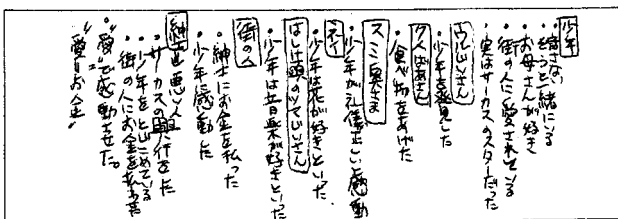 少年
・話さない
・ぞうと一緒にいる
・お母さんが好き
・街の人に愛されている
・実はサーカスのスターだった
ウルじいさん
・少年を発見した
クノばあさん
・食べ物をあげた
スミレ奥さま
・少年が礼儀正しいと感動
ネイ
・少年は花が好きといった
はしけ頭のツてじいさん
・少年は音楽が好きといった
街の人
・紳士にお金を払った
・少年に感動した
紳士 悪い人
・サーカスの
・少年をとじこめている
・街の人にお金を払わせた
・"愛"で感動させた。
"愛よりお金"